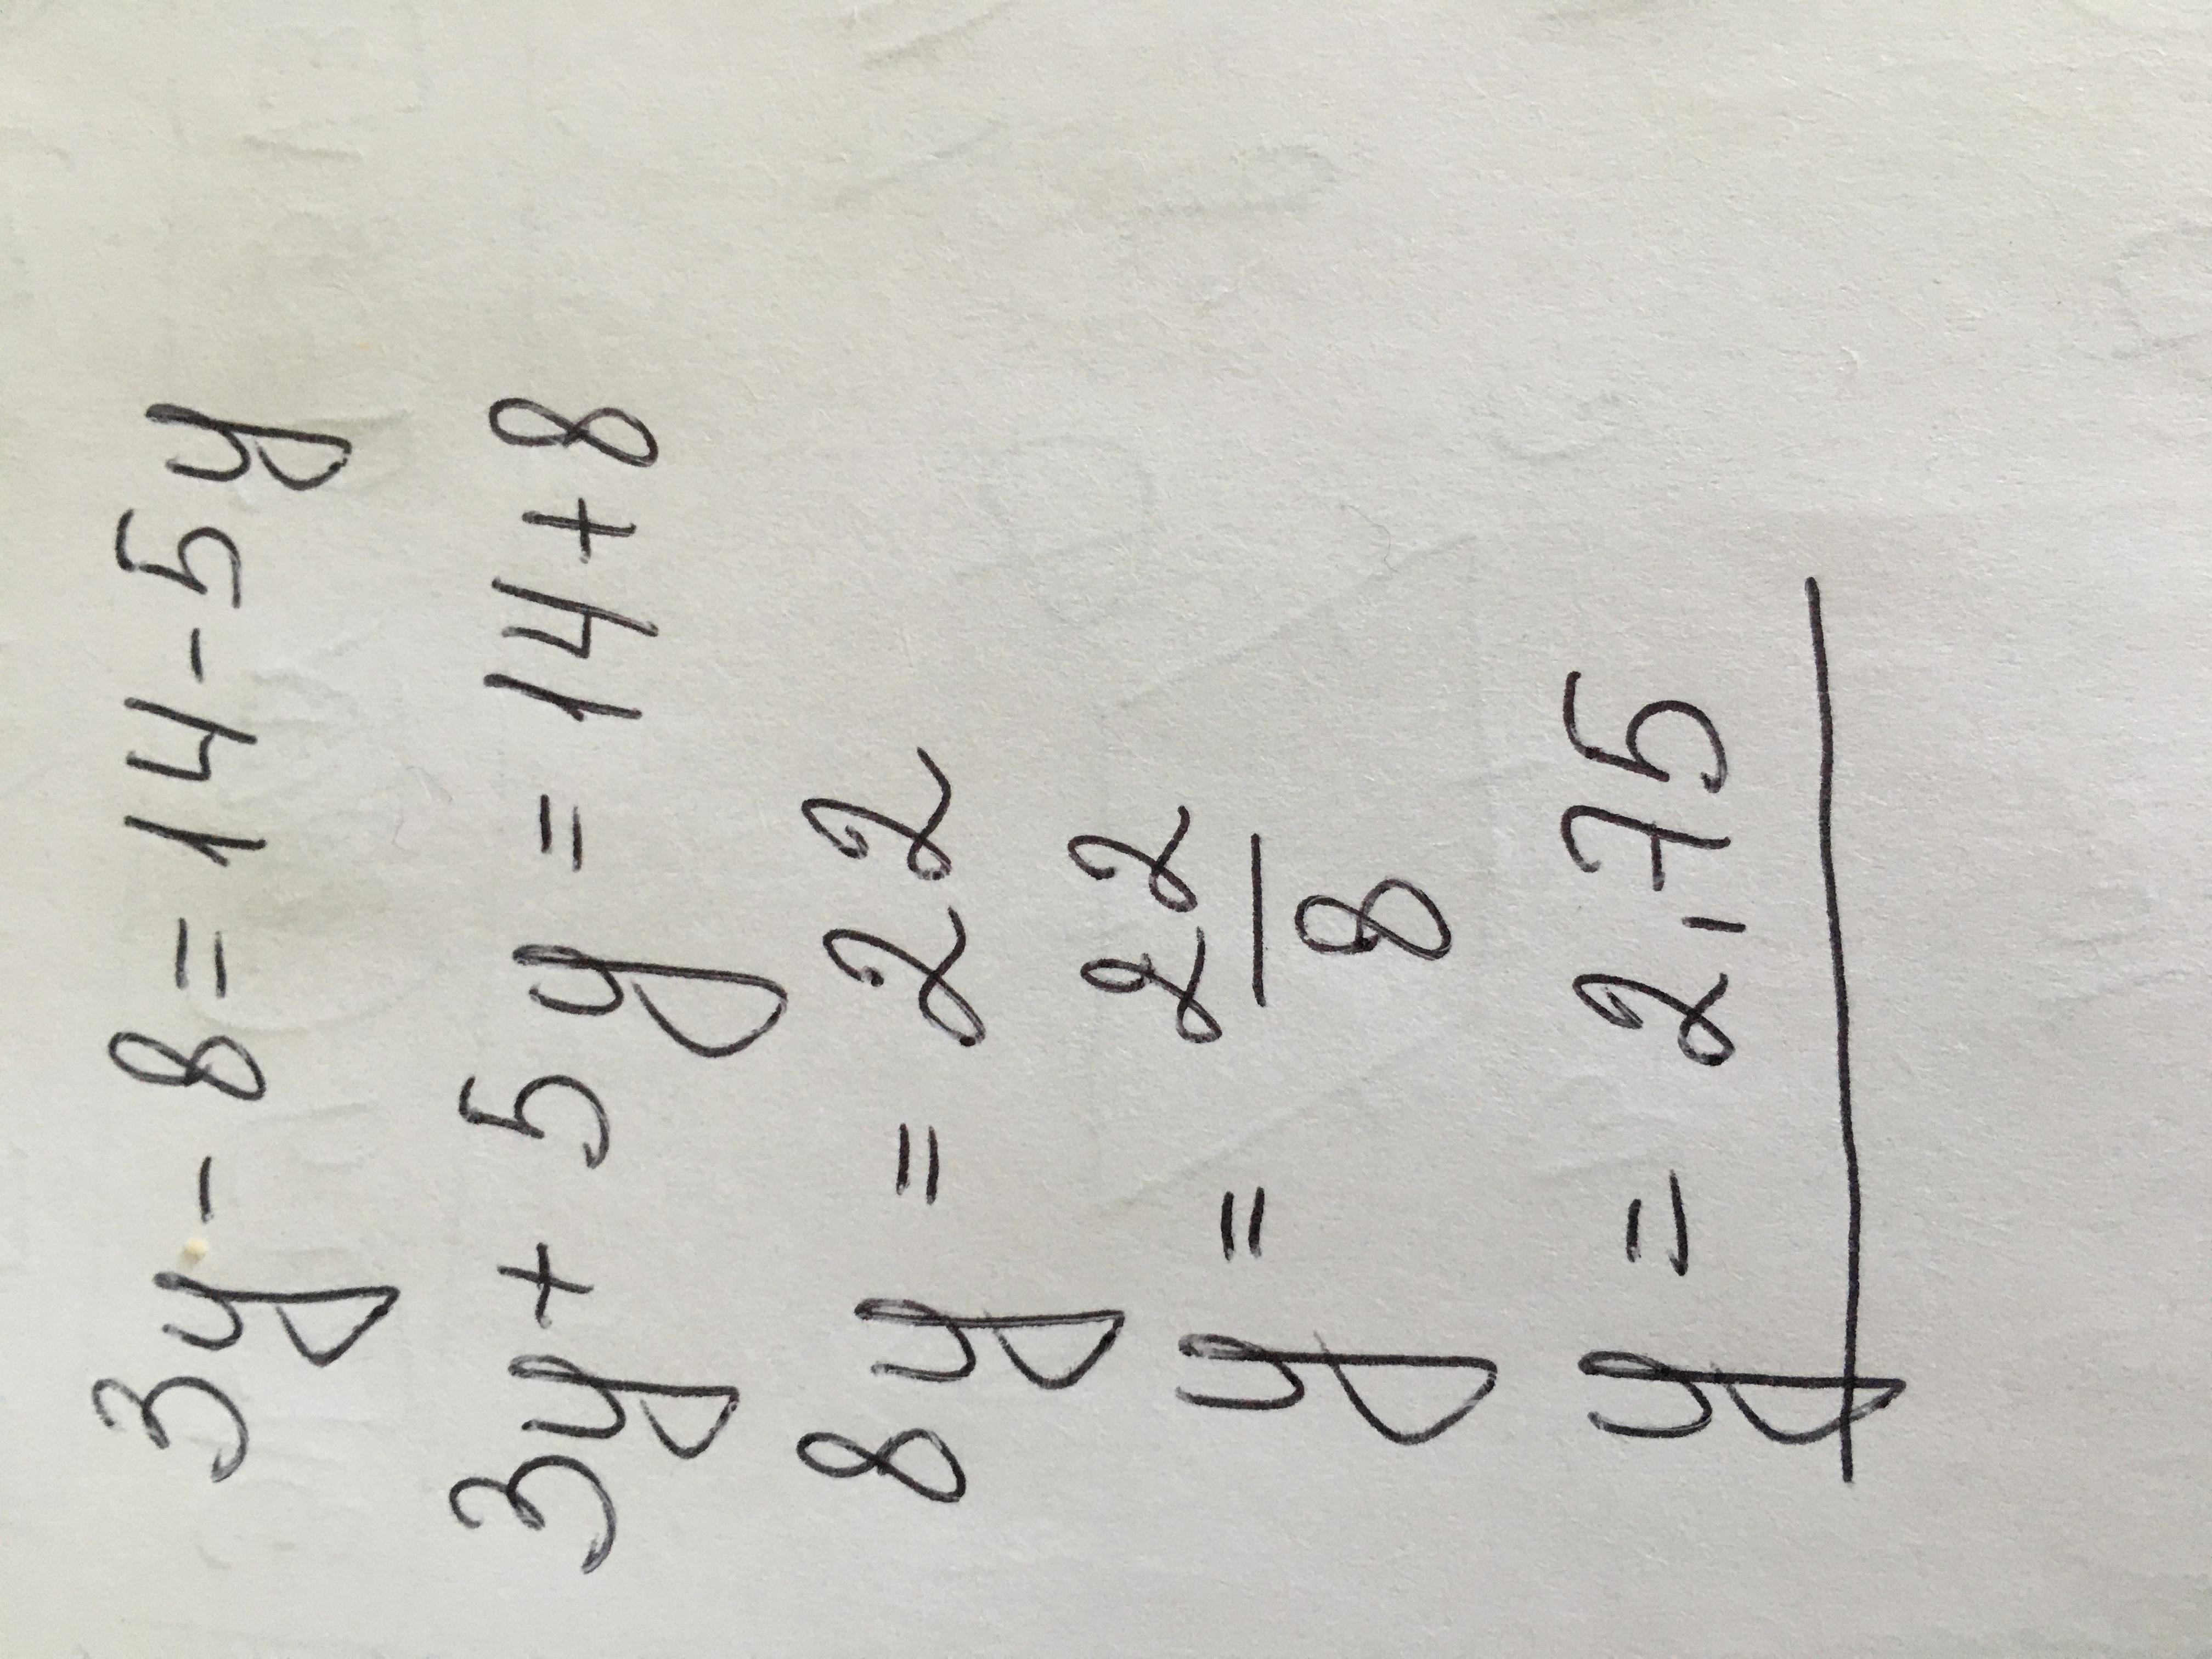 3y - 8 = 14 - 5y
3y + 5y = 14 + 8
8y = 22
y = 22/8
y = 2,75